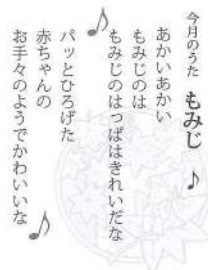 今月のうた もみじ
あかいあかい
もみじのは
もみじのはっぱはきれいだな
パッとひろげた
赤ちゃんの
お手々のようでかわいいな